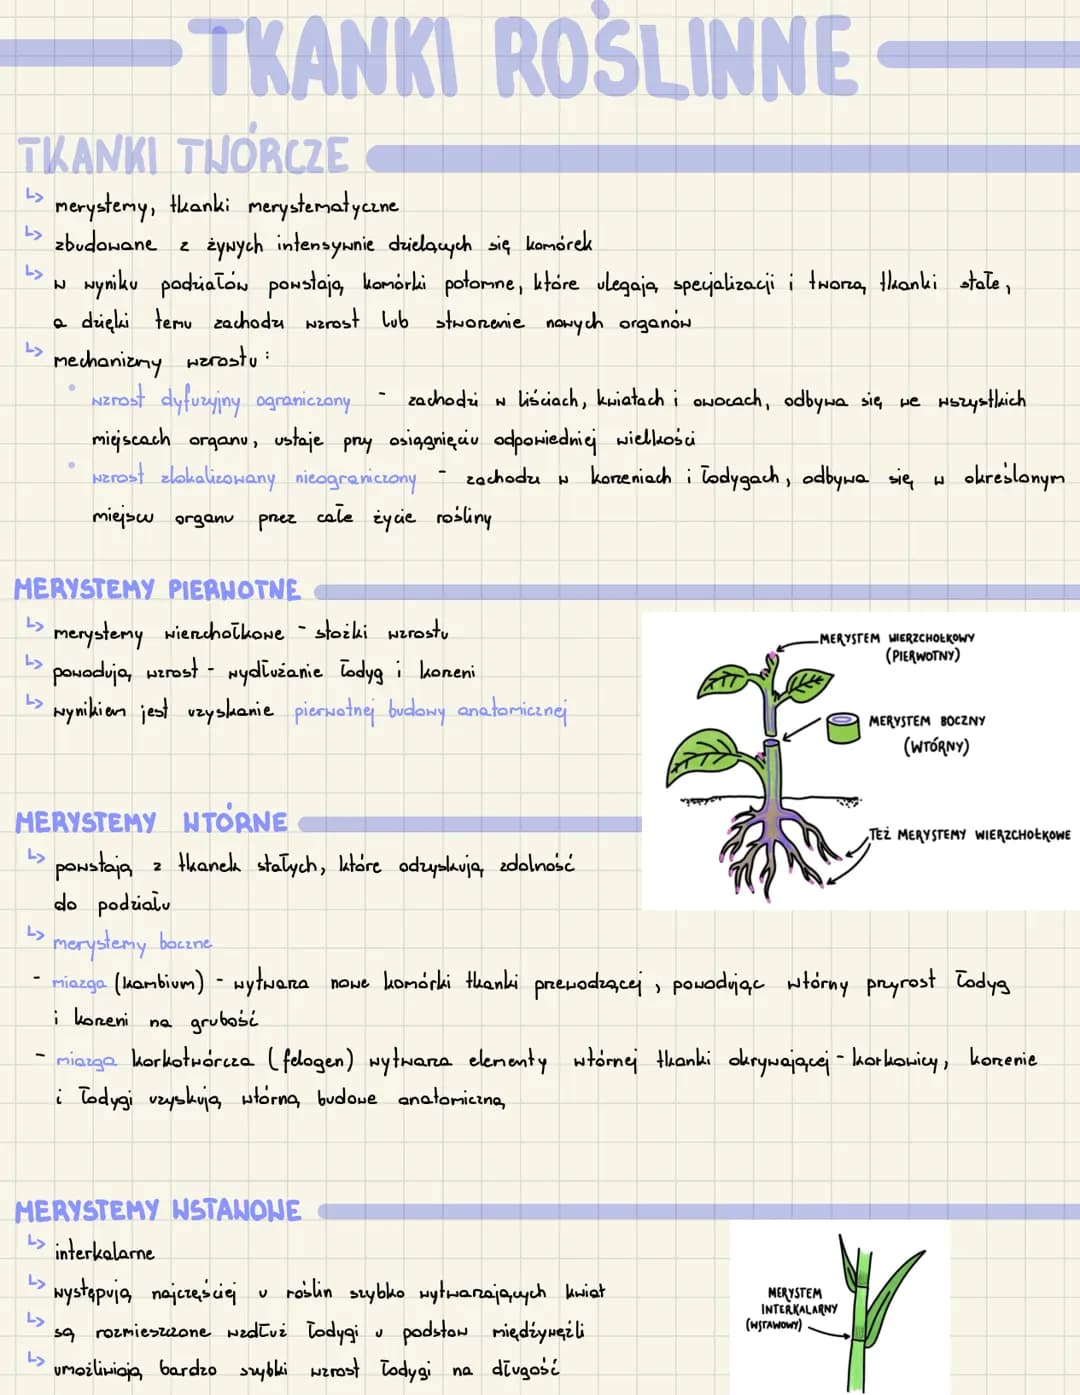 TKANKI ROŚLINNE
TKANKI TWÓRCZE
↳ merystemy, tkanki merystematyczne
↳ zbudowane z żywych intensywnie dzielących się komórek
↳ w wyniku podziałów powstają komórki potomne, które ulegają specjalizacji i tworzą tkanki stałe,
a dzięki temu zachodzi wzrost lub stworzenie nowych organów
↳ mechanizmy wzrostu:
• wzrost dyfuzyjny ograniczony - zachodzi w liściach, kwiatach i owocach, odbywa się we wszystkich
miejscach organu, ustaje przy osiągnięciu odpowiedniej wielkości
• wzrost zlokalizowany nieograniczony - zachodzi w korzeniach i łodygach, odbywa się w określonym
miejscu organu przez całe życie rośliny
MERYSTEMY PIERWOTNE
↳ merystemy wierzchołkowe - stożki wzrostu
↳ powodują wzrost - wydłużanie łodyg i korzeni
↳ wynikiem jest uzyskanie pierwotnej budowy anatomicznej
MERYSTEM WIERZCHOŁKOWY
(PIERWOTNY)
MERYSTEM BOCZNY
(WTÓRNY)
TEŻ MERYSTEMY WIERZCHOŁKOWE
MERYSTEMY WTÓRNE
↳ powstają z tkanek stałych, które odzyskują zdolność
do podziału
↳ merystemy boczne
- miazga (kambium) - wytwarza nowe komórki tkanki przewodzącej, powodując wtórny przyrost łodyg
i korzeni na grubość
- miazga korkotwórcza (felogen) wytwarza elementy wtórnej tkanki okrywającej - korkowicy, korzenie
i łodygi uzyskują wtórną budowe anatomiczną
MERYSTEMY WSTAWOWE
↳ interkalarne
↳ występują najczęściej u roślin szybko wytwarzających kwiat
↳ są rozmieszczone wzdłuż łodygi u podstaw międzywęźli
↳ umożliwiają bardzo szybki wzrost łodygi na długość
MERYSTEM
INTERKALARNY
(WSTAWOWY)